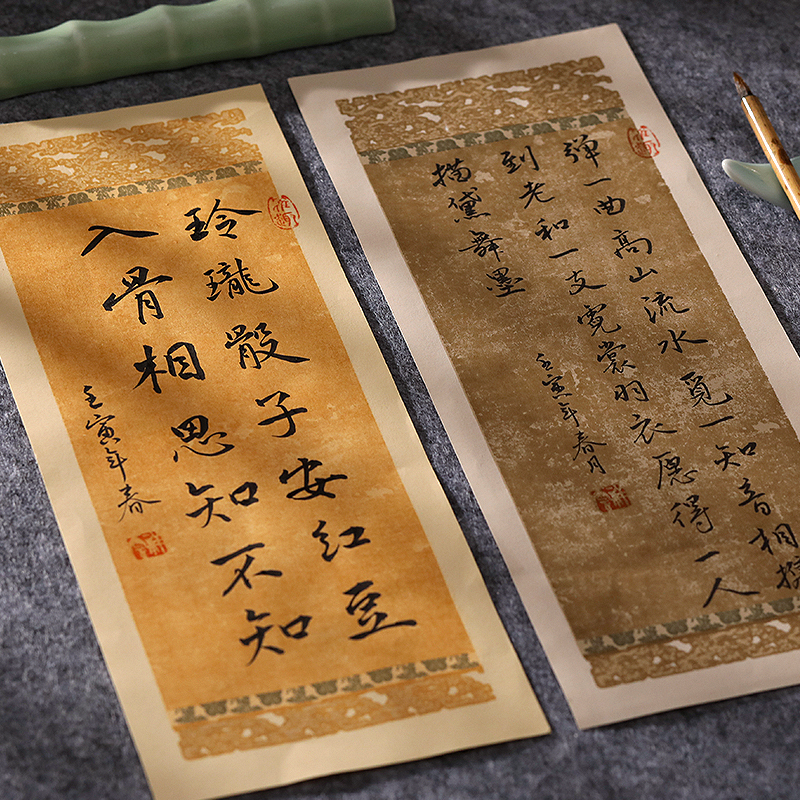 玲瓏骰子安红豆
入骨相思知不知
壬寅年春
弹一曲高山流水觅一知音相
到老和一支霓裳羽衣愿得一人
描黛舞墨
壬寅年春月